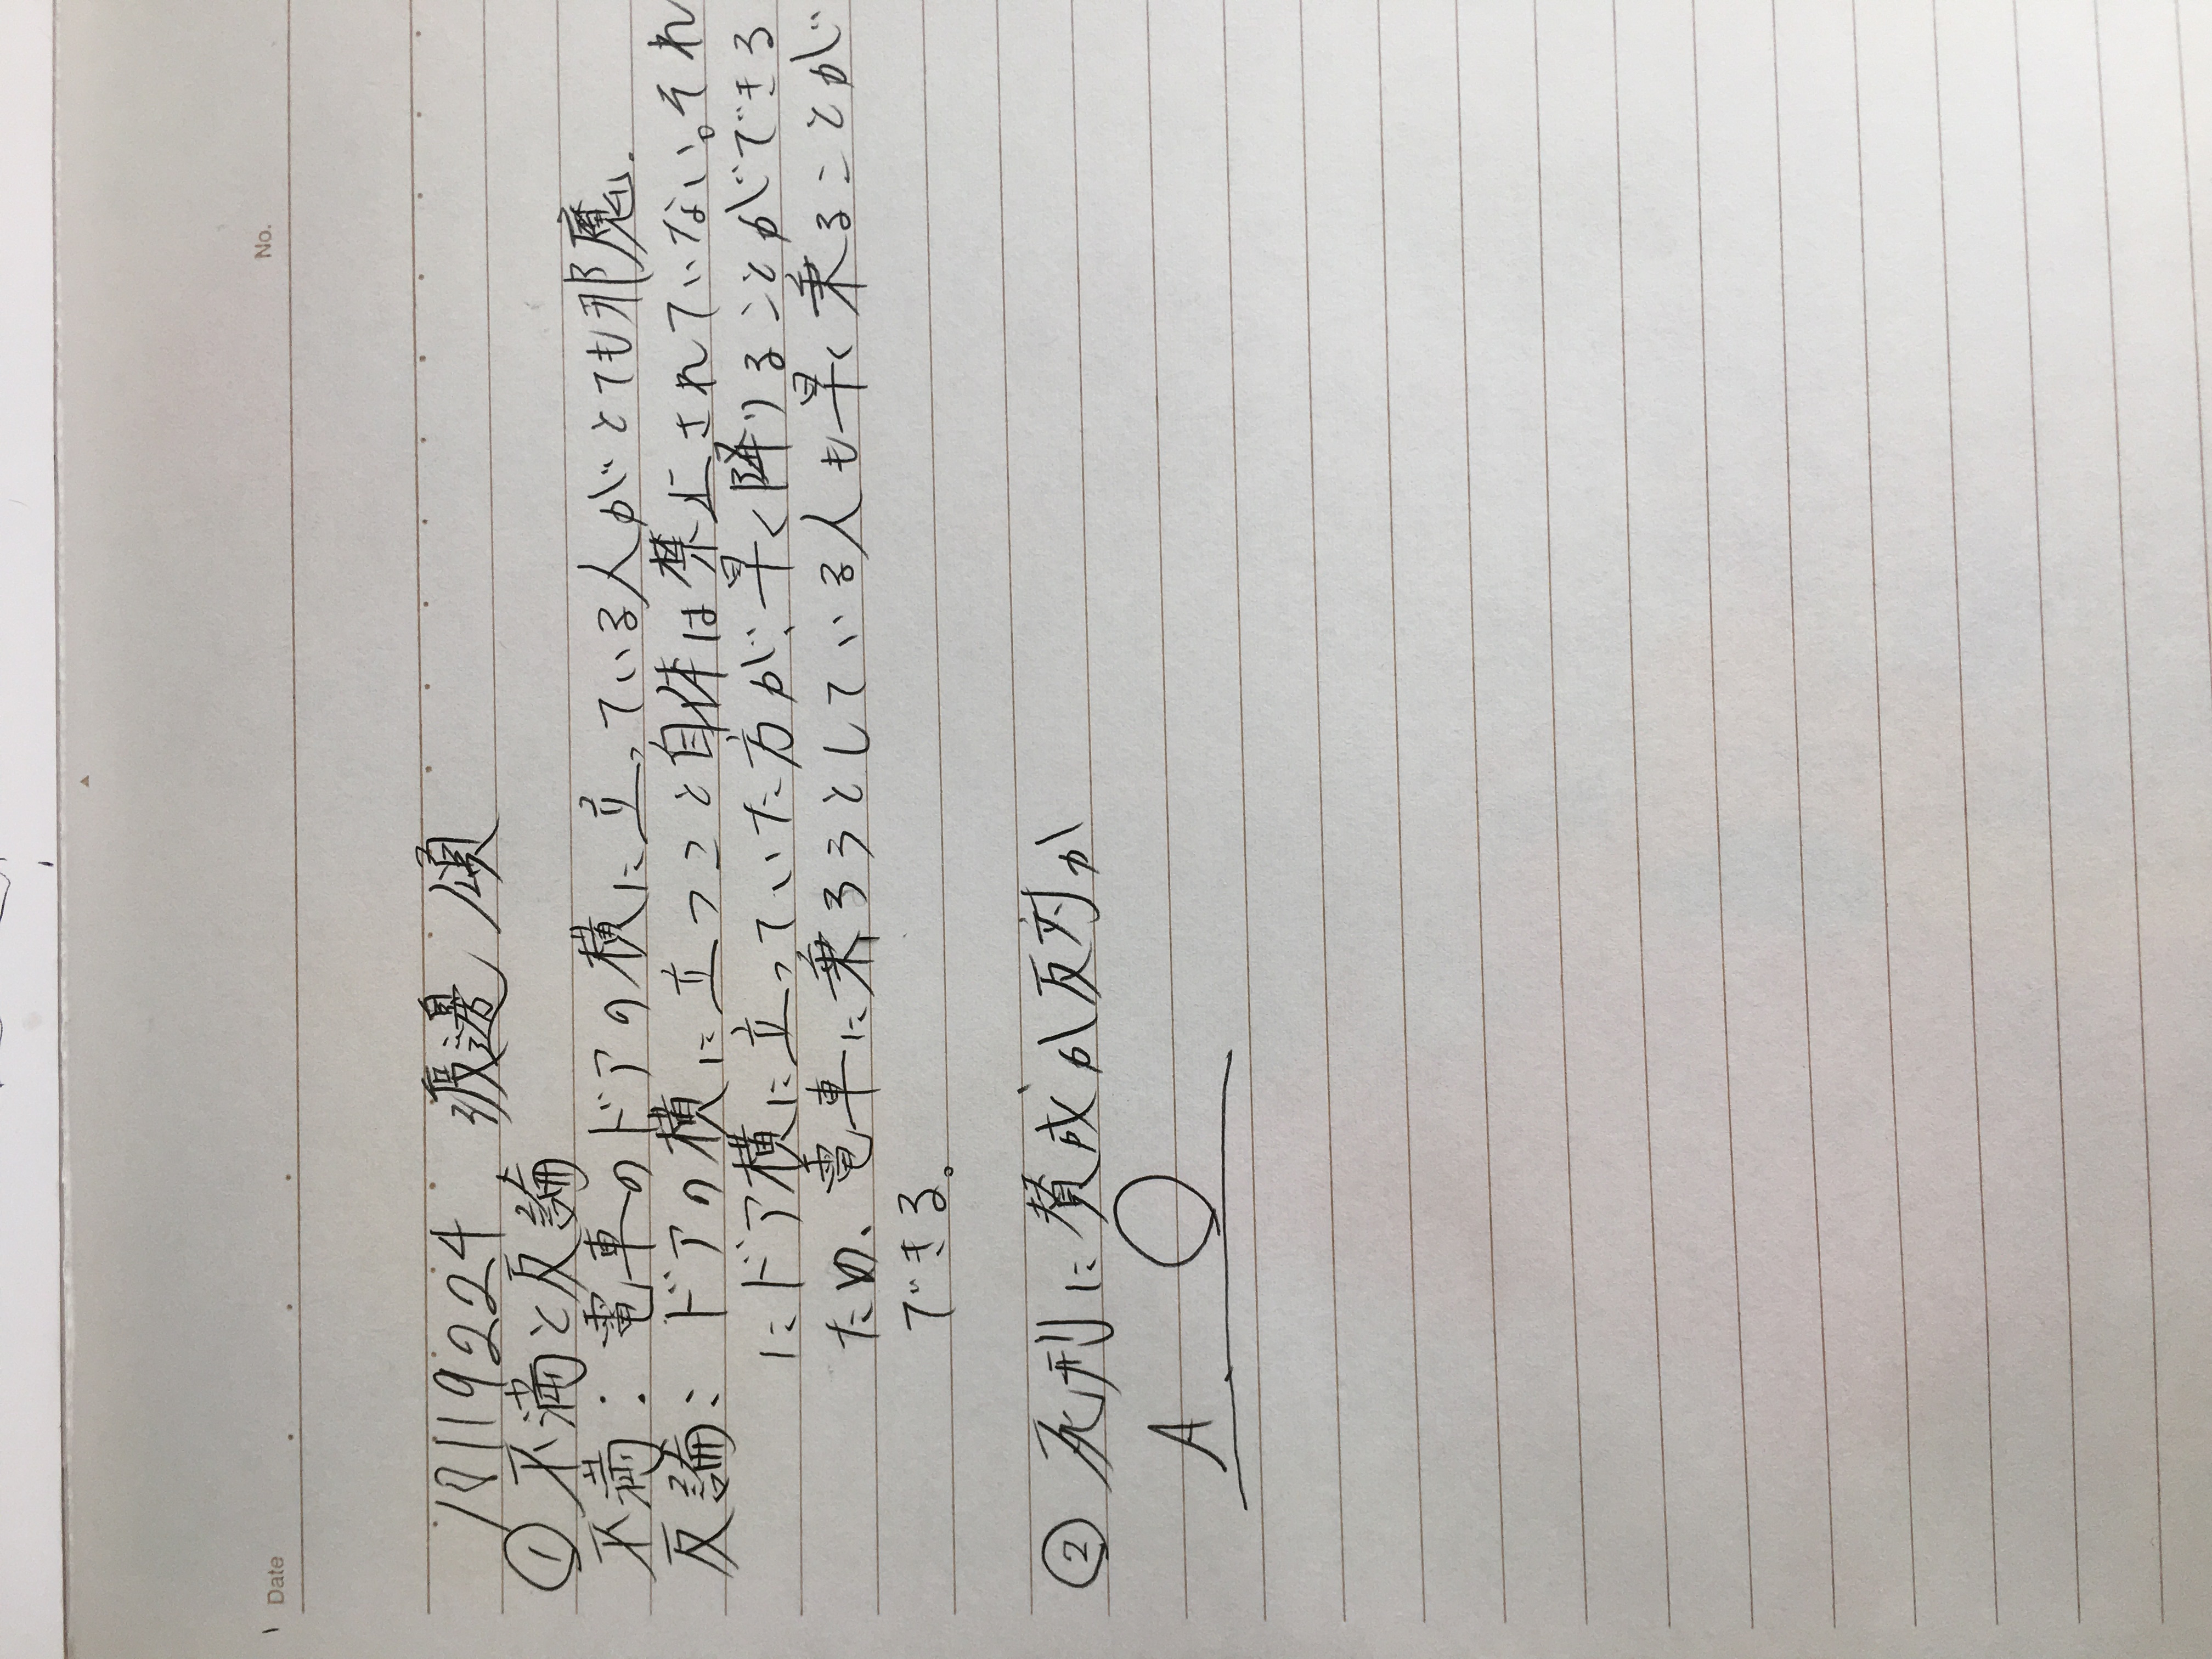 Date
No.
18119224 渡邊 頌
① 不満と反論
不満：電車のドアの横に立っている人がとても邪魔.
反論：ドアの横に立つこと自体は禁止されていない。それ
にドア横に立っていた方が、早く降りることができる
ため、電車に乗ろうとしている人も早く乗ることが
できる。
② 死刑に賛成か反対か
A ○